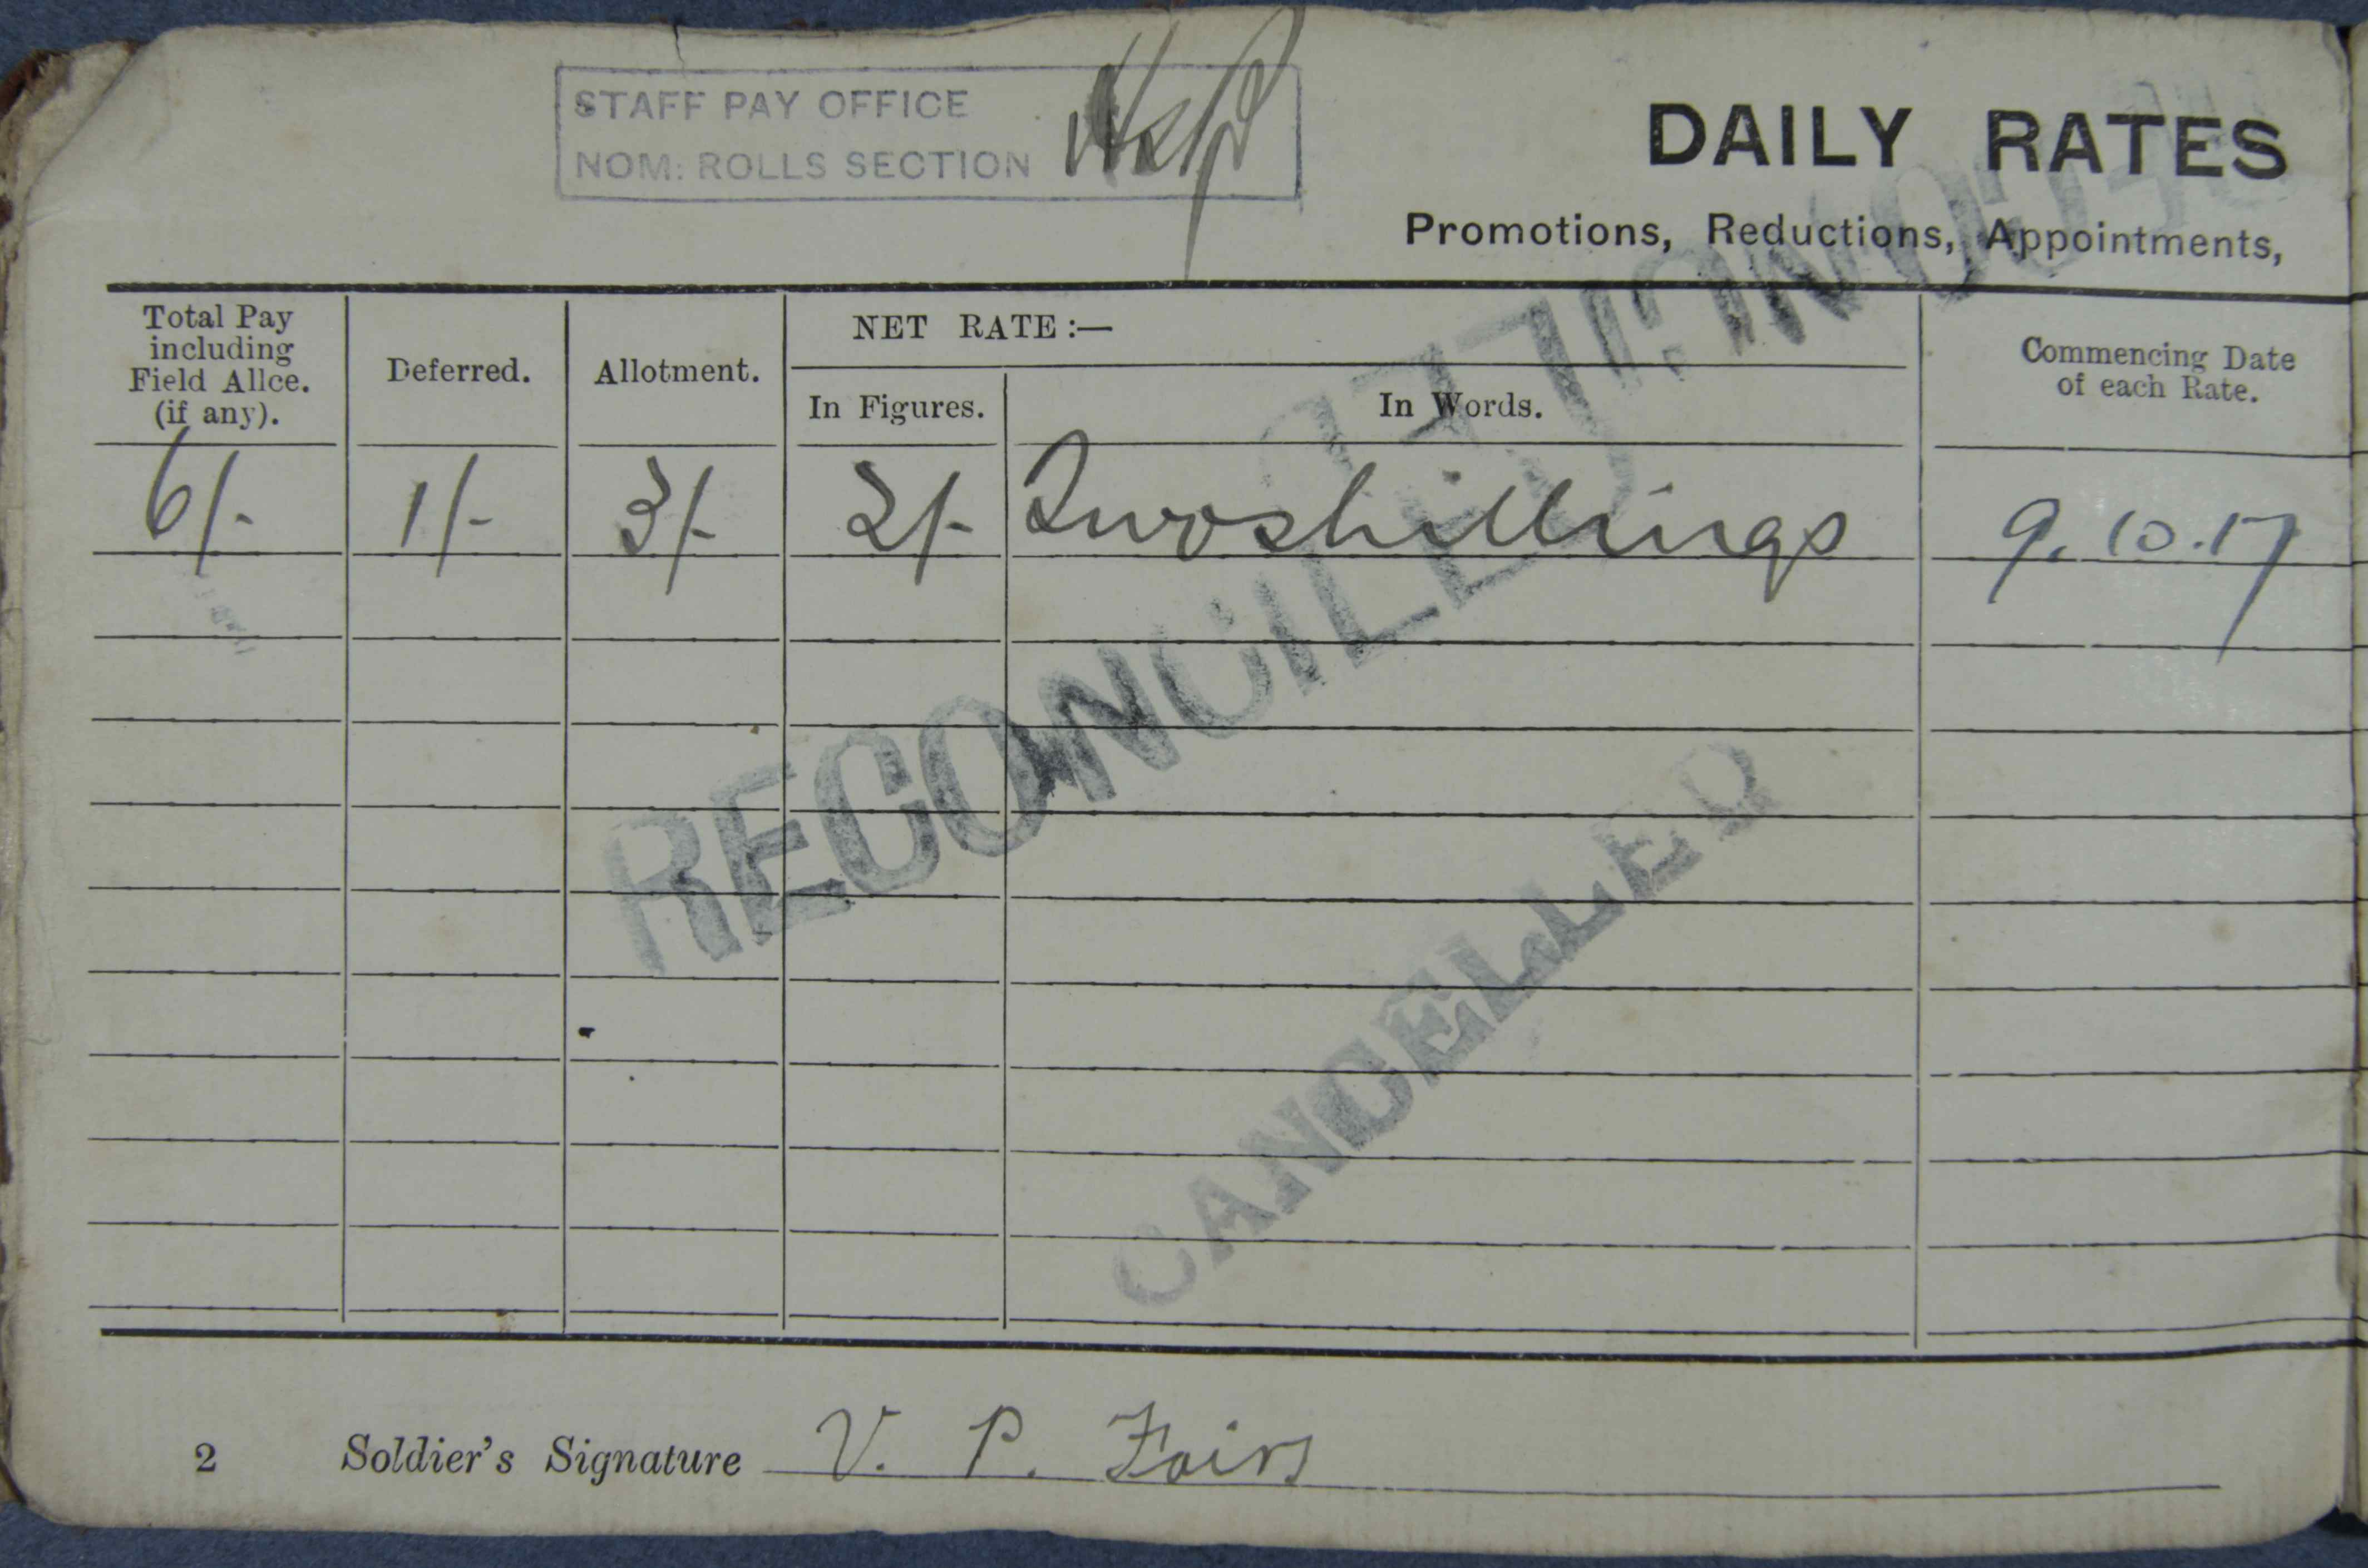 STAFF PAY OFFICE
NOM: ROLLS SECTION
DAILY RATES
Promotions, Reductions, Appointments,
Total Pay including Field Allce. (if any).
Deferred.
Allotment.
NET RATE :—
In Figures.
In Words.
Commencing Date of each Rate.
6/- 1/- 3/- 2/- Two shillings 9.10.17
RECONCILED
CANCELLED
2 Soldier's Signature V. P. Fairs